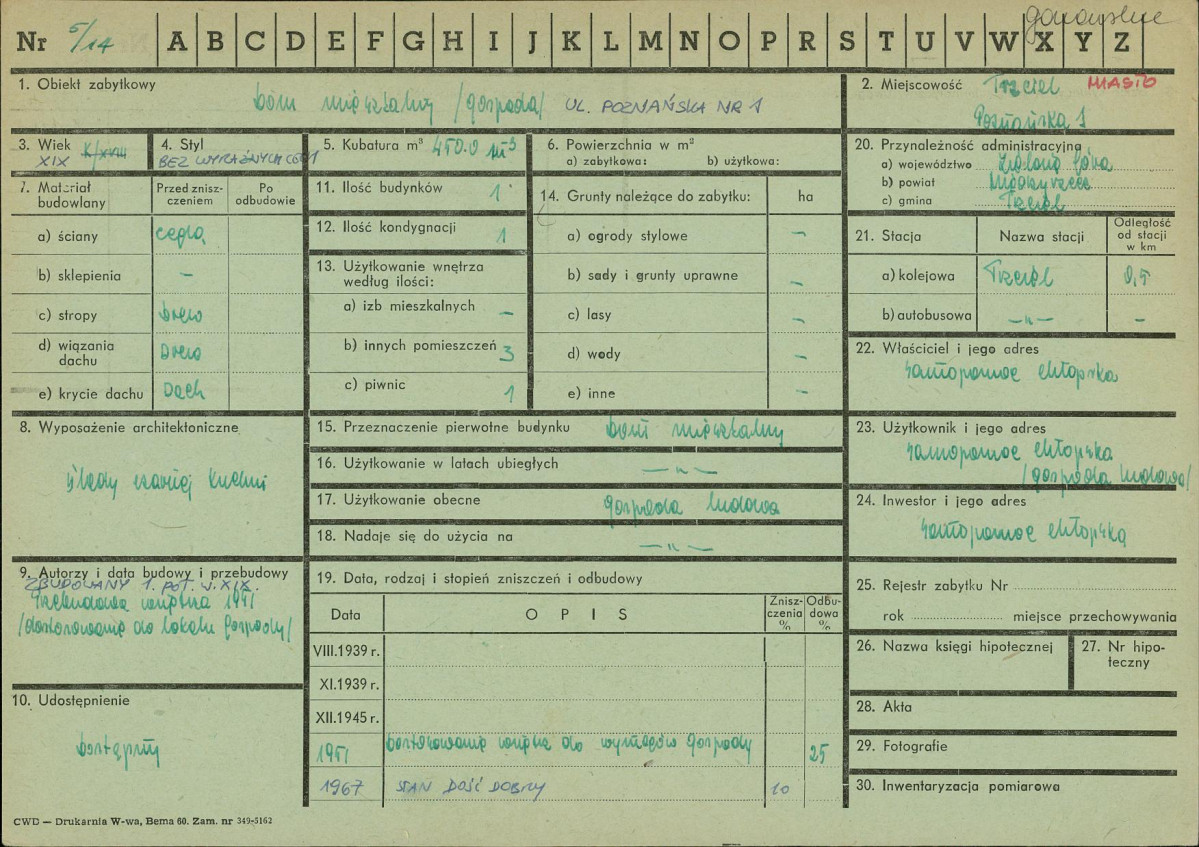 Nr 5/14 A B C D E F G H I J K L M N O P R S T U V W X Y Z
gorzowskie
1. Obiekt zabytkowy
dom mieszkalny /gospoda/ UL. POZNAŃSKA NR 1
2. Miejscowość Trzciel MIASTO
Poznańska 1
3. Wiek
XIX K/XVIII
4. Styl
BEZ WYRAŹNYCH CECH
5. Kubatura m³ 450.0 m³
6. Powierzchnia w m²
a) zabytkowa: b) użytkowa:
20. Przynależność administracyjna
a) województwo Zielona Góra
b) powiat Międzyrzecz
c) gmina Trzciel
7. Materiał budowlany
Przed zniszczeniem
Po odbudowie
a) ściany cegła
b) sklepienia –
c) stropy drewo
d) wiązania dachu drewo
e) krycie dachu dach
11. Ilość budynków 1
12. Ilość kondygnacji 1
13. Użytkowanie wnętrza
według ilości:
a) izb mieszkalnych –
b) innych pomieszczeń 3
c) piwnic 1
14. Grunty należące do zabytku: ha
a) ogrody stylowe –
b) sady i grunty uprawne –
c) lasy –
d) wody –
e) inne –
21. Stacja Nazwa stacji Odległość od stacji w km
a) kolejowa Trzciel 0,5
b) autobusowa –"– –
22. Właściciel i jego adres
Samopomoc chłopska
8. Wyposażenie architektoniczne
ślady czarnej kuchni
15. Przeznaczenie pierwotne budynku dom mieszkalny
16. Użytkowanie w latach ubiegłych –"–
17. Użytkowanie obecne gospoda ludowa
18. Nadaje się do użycia na –"–
23. Użytkownik i jego adres
Samopomoc chłopska
/gospoda ludowa/
24. Inwestor i jego adres
Samopomoc chłopska
9. Autorzy i data budowy i przebudowy
ZBUDOWANY 1. POŁ. W. XIX.
Przebudowa wnętrza 1951
/dostosowanie do lokalu gospody/
10. Udostępnienie
dostępny
19. Data, rodzaj i stopień zniszczeń i odbudowy
Data OPIS Zniszczenia % Odbudowa %
VIII.1939 r.
XI.1939 r.
XII.1945 r.
1951 dostosowanie wnętrza do wymogów gospody 25
1967 STAN DOŚĆ DOBRY 10
25. Rejestr zabytku Nr
rok miejsce przechowywania
26. Nazwa księgi hipotecznej
27. Nr hipoteczny
28. Akta
29. Fotografie
30. Inwentaryzacja pomiarowa
CWD — Drukarnia W-wa, Bema 60. Zam. nr 349-5162